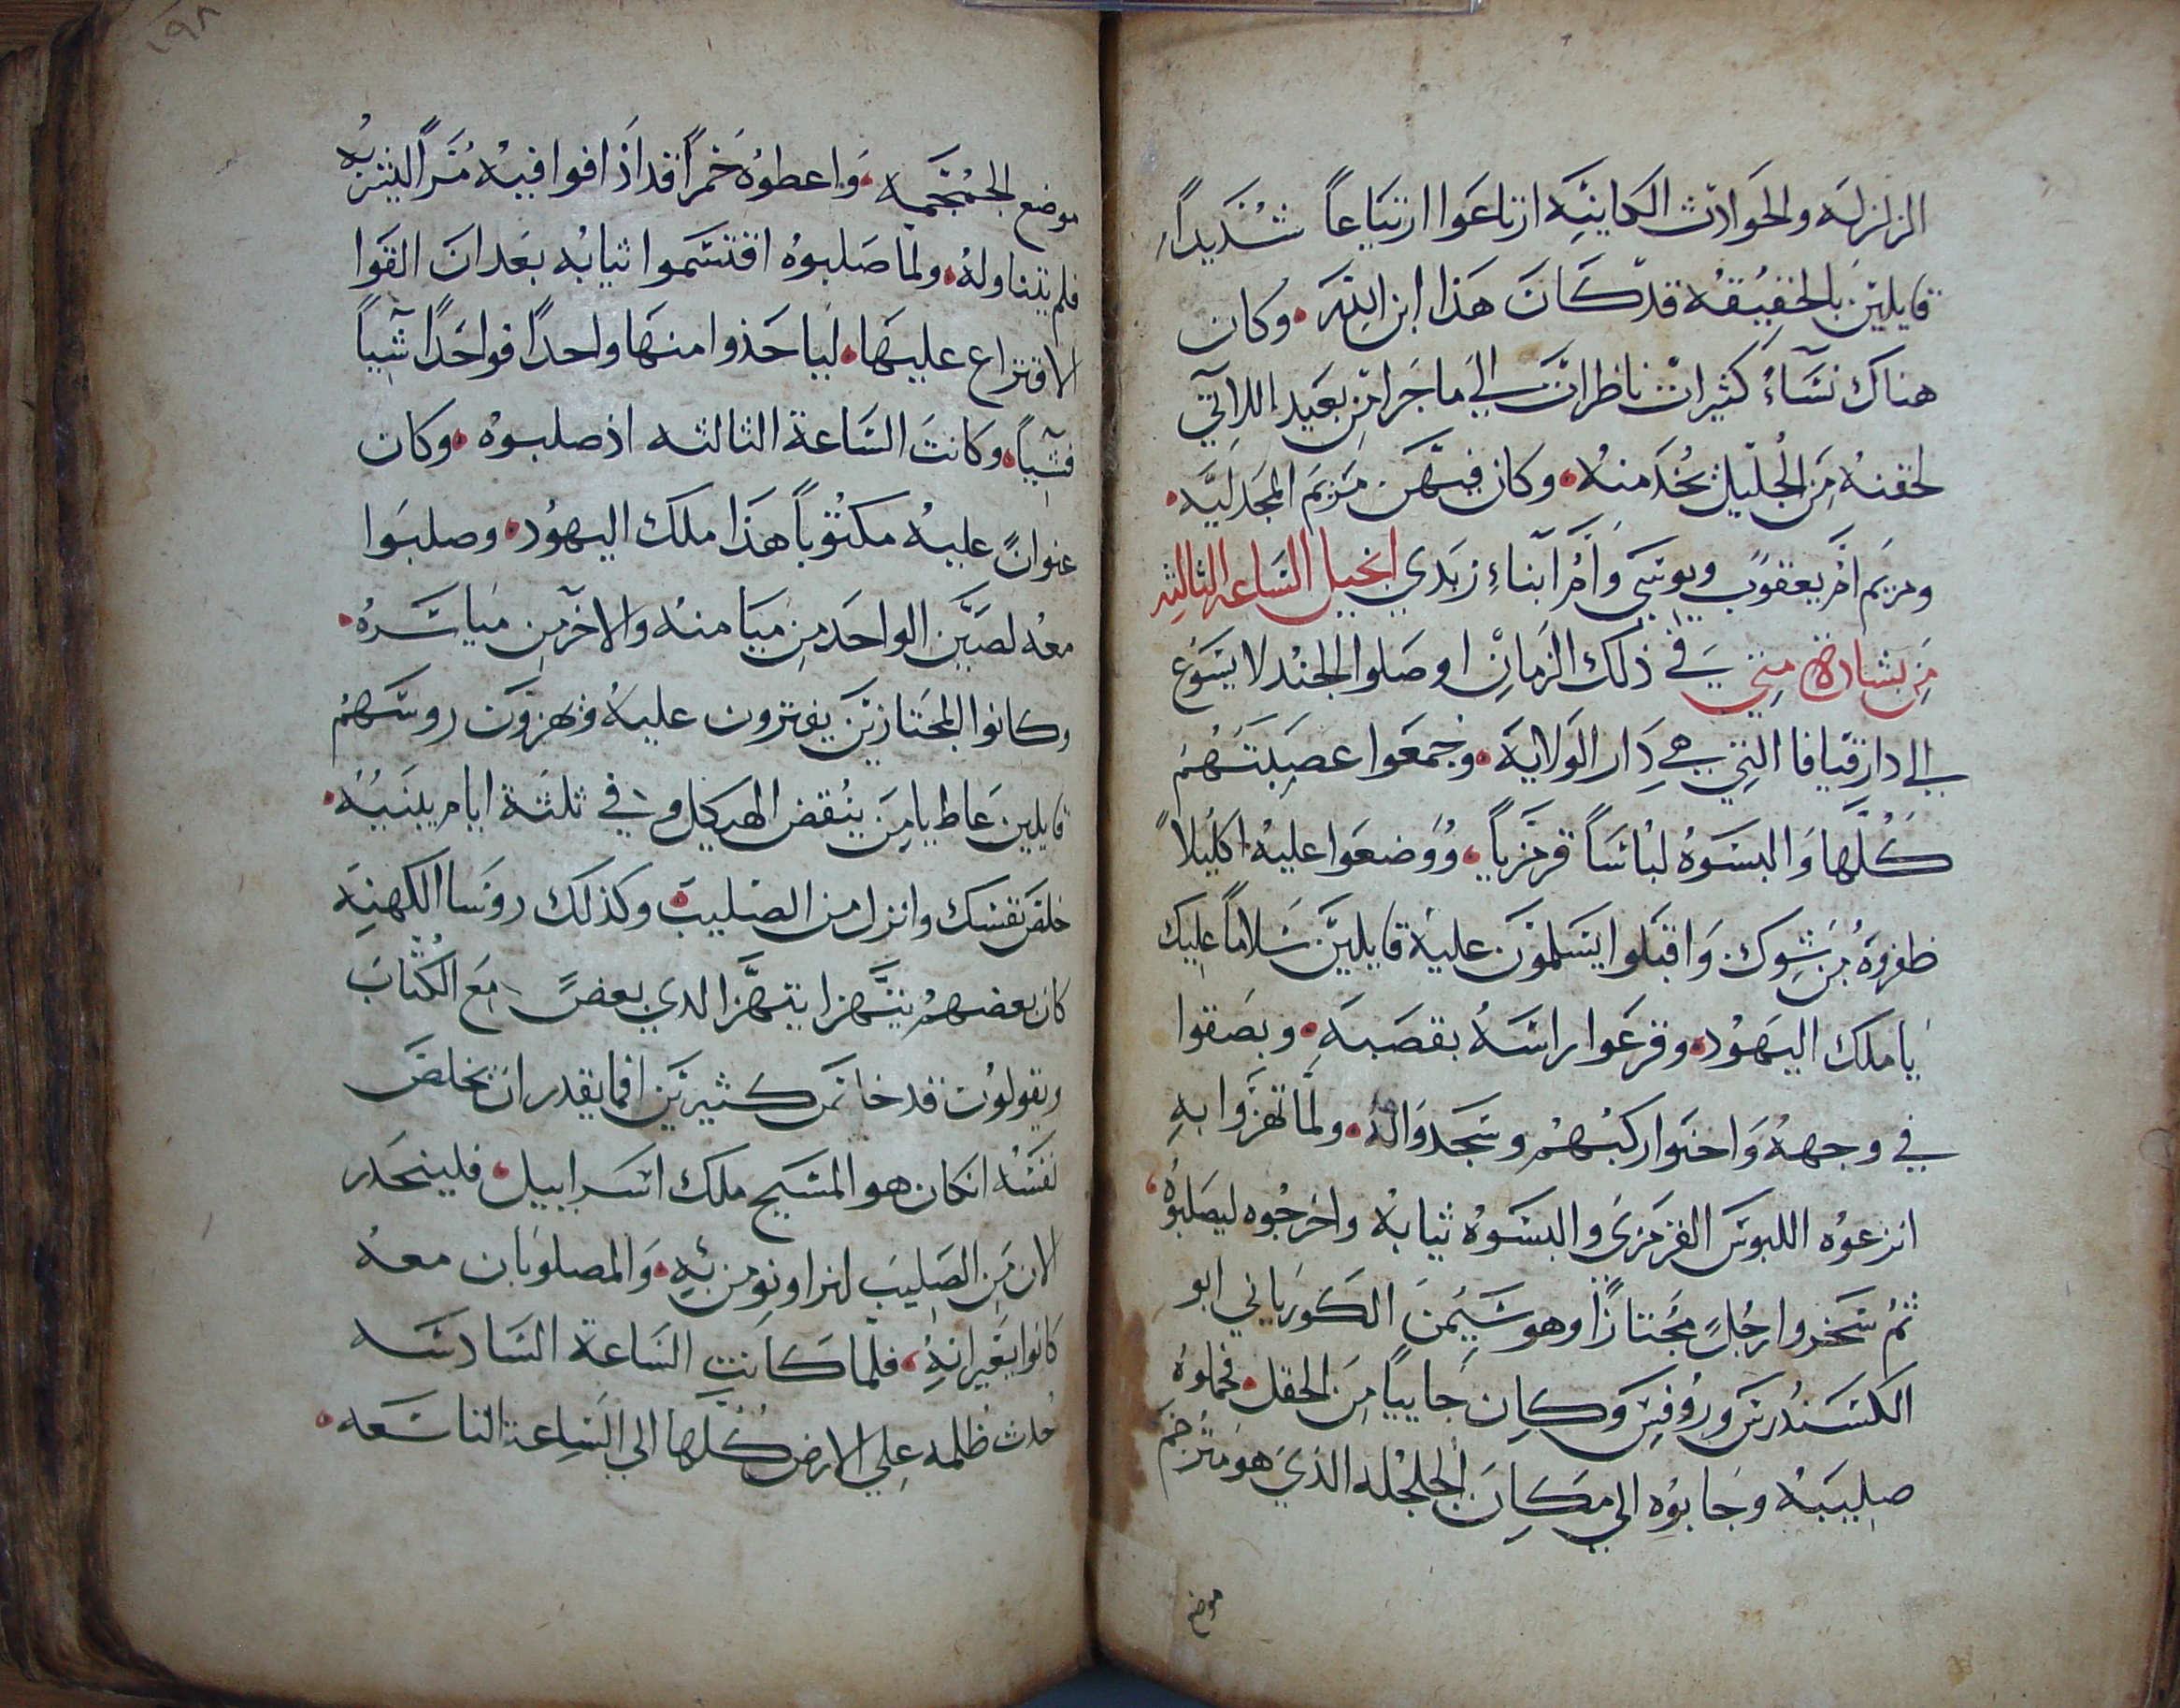 الزلزله والحوادث الكاينه ارتاعوا ارتياعاً شديداً
قايلين بالحقيقه قد كان هذا ابن الله وكان
هناك نساءُ كثيرات ناظرات الي ما جرا من بعيد اللاتي
لحقنه من الجليل يخدمنه وكان فيهن مريم المجدليه
ومريم ام يعقوب ويوسي وام ابناء زبدي انجيل الساعه الثالثه
من بشارة متي في ذلك الزمان اوصلوا الجند لايسوع
الي دار قيافا التي هي دار الولايه وجمعوا عصبتهم
كلها والبسوه لباساً قرمزياً ووضعوا عليه اكليلاً
ظفروهُ من شوك واقبلوا يسلمون عليه قايلين سلاماً عليك
يا ملك اليهود وقرعوا راسه بقصبه وبصقوا
في وجهه واحنوا ركبهم وسجدوا له ولما تهزوا به
انزعوه اللبوس القرمزي والبسوه ثيابه واخرجوه ليصلبوه
ثم سخروا رجلٍ مجتازاً وهو سيمن الكورياني ابو
الكسندرس وروفس وكان جايياً من الحقل فحملوه
صليبه وجابوه الي مكان الجلجله الذي هو مترجم
موضع
١٩٨
موضع الجمجمه واعطوه خمراً قد اذافوا فيه مراً ليشربه
فلم يتناوله ولما صلبوه اقتسموا ثيابه بعد ان القوا
الاقتراع عليها لياخذوا منها واحداً فواحداً شياً
فشياً وكانت الساعة الثالثه اذ صلبوه وكان
عنوانٍ عليه مكتوباً هذا ملك اليهود وصلبوا
معه لصين الواحد من ميامنه والاخر من مياسره
وكانوا المجتازين يفترون عليه ويهزون روسهم
قايلين عاط يا من ينقض الهيكل وفي ثلثة ايام يبنيه
خلص نفسك وانزل من الصليب وكذلك روسا الكهنه
كان بعضهم يتهزا يتهزا لدي بعضٍ مع الكتاب
ويقولون قد خلص كثيرين افما يقدر ان يخلص
نفسه ان كان هو المسيح ملك اسراييل فلينحدر
الان من الصليب لنرا ونومن به والمصلوبان معه
كانوا يعيرانه فلما كانت الساعة السادسه
حدث ظلمه علي الارض كلها الي الساعة التاسعه